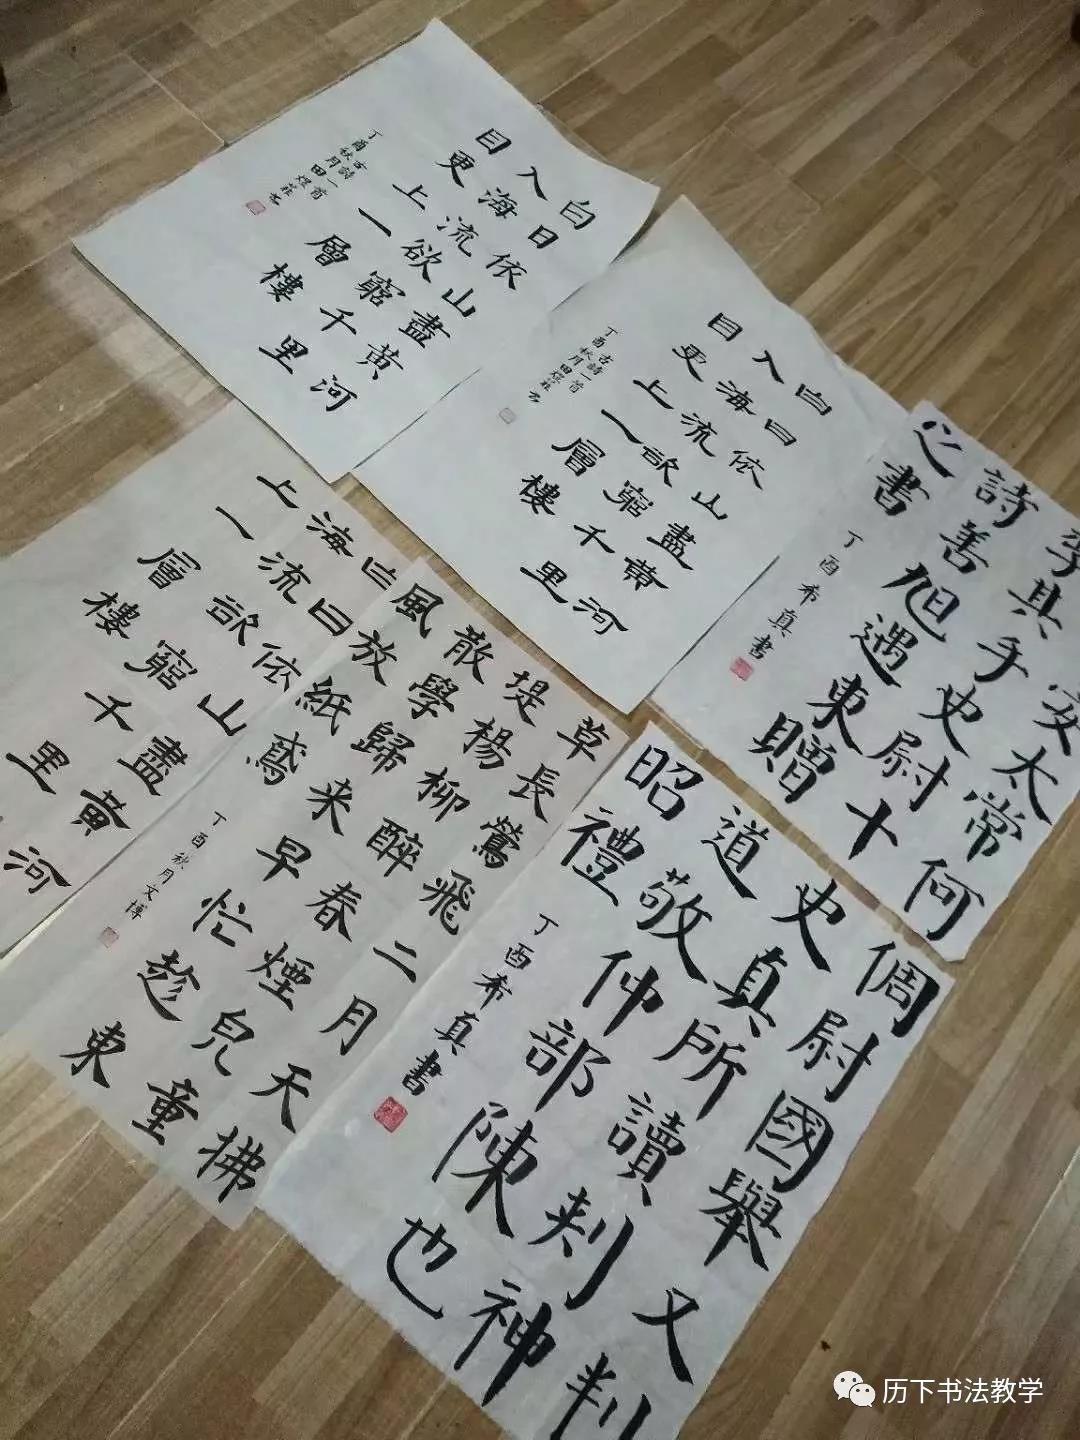 白日依山盡黄河
入海流欲窮千里
目更上一層樓
古詩一首
丁酉秋月田煜菲书
白日依山盡黄河
入海流欲窮千里
目更上一層樓
古詩一首
丁酉秋月田煜菲书
白日依山盡黄河
海流欲窮千里
上一層樓
草長鶯飛二月天拂
堤楊柳醉春煙兒童
散學歸来早忙趁東
風放紙鳶
丁酉秋月文博
安太常何
其手史尉十
詩善旭遇東贈
之書
丁酉希真書
倜尉國舉又判
史真所讀剡神
道敬仲部陳也
昭禮
丁酉希真書
历下书法教学